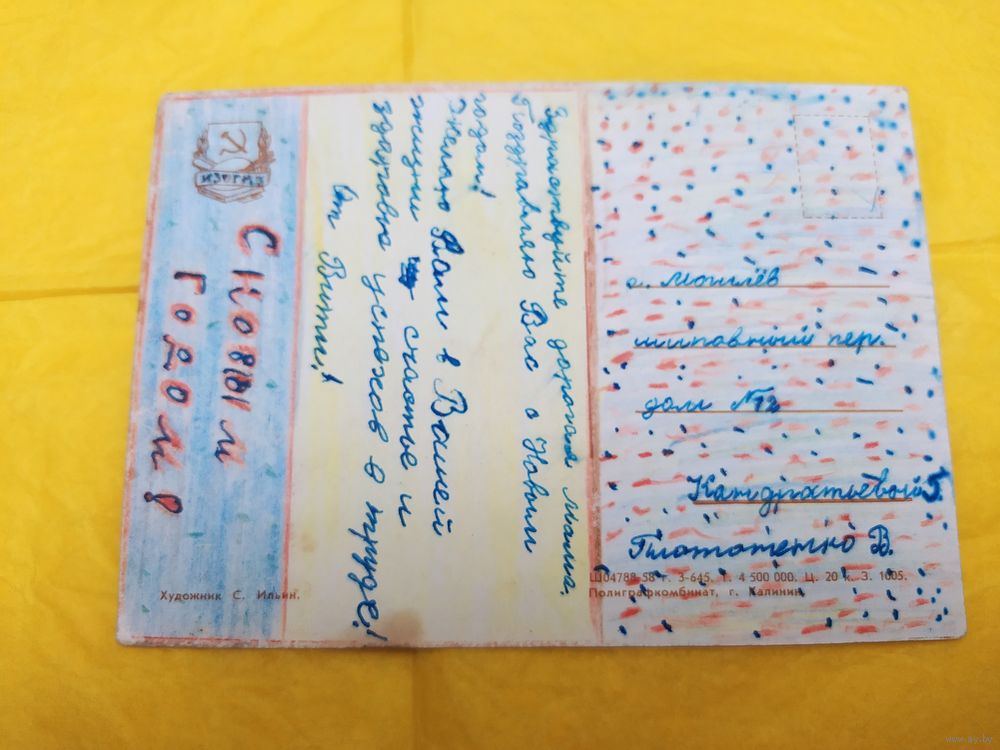 ИЗОГИЗ
С НОВЫМ
ГОДОМ!
Художник С. Ильин.
Здравствуйте дорогая мама.
Поздравляю Вас с Новым
годом!
Желаю Вам в Вашей
жизни счастье и
здаровья успехов в труде!
От Вити!
г. Могилёв
пер.
дом №12
Кандратьевой
В.
Ш04788 58 г. З-645. Т. 4 500 000. Ц. 20 к. З. 1005.
Полиграфкомбинат, г. Калинин.
www.ay.by